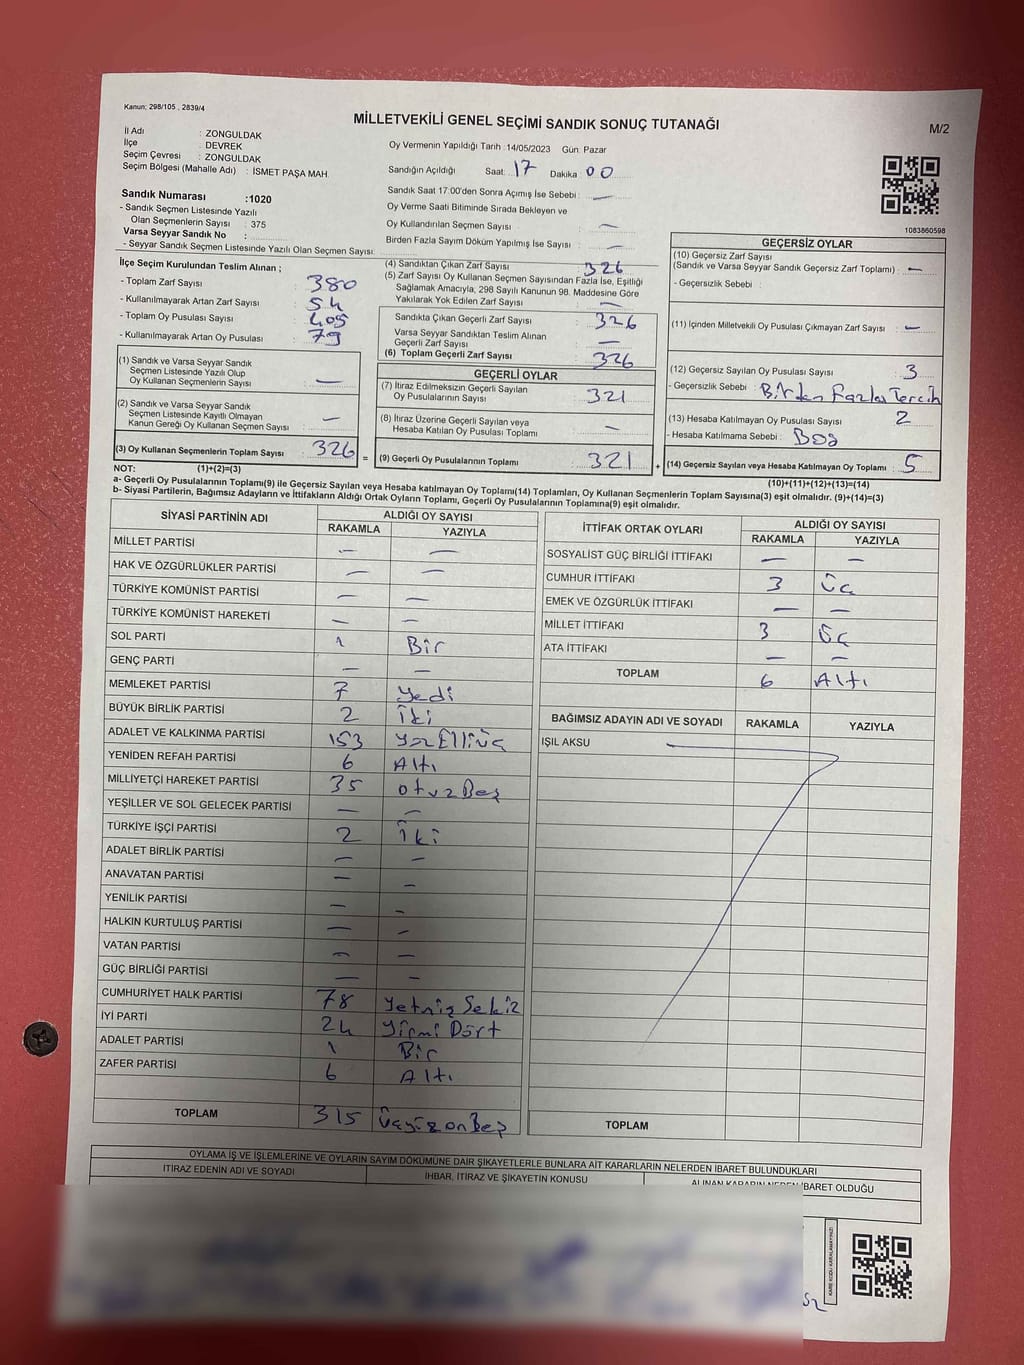 Kanun; 298/105 , 2839/4
MİLLETVEKİLİ GENEL SEÇİMİ SANDIK SONUÇ TUTANAĞI
M/2
İl Adı : ZONGULDAK
İlçe : DEVREK
Seçim Çevresi : ZONGULDAK
Seçim Bölgesi (Mahalle Adı) : İSMET PAŞA MAH.
Oy Vermenin Yapıldığı Tarih :14/05/2023 Gün: Pazar
Sandığın Açıldığı Saat: 17 Dakika 00
Sandık Saat 17:00'den Sonra Açılmış İse Sebebi : —
Oy Verme Saati Bitiminde Sırada Bekleyen ve
Oy Kullandırılan Seçmen Sayısı : —
Birden Fazla Sayım Döküm Yapılmış İse Sayısı : —
Sandık Numarası :1020
- Sandık Seçmen Listesinde Yazılı
Olan Seçmenlerin Sayısı : 375
Varsa Seyyar Sandık No :
- Seyyar Sandık Seçmen Listesinde Yazılı Olan Seçmen Sayısı:
1083860598
İlçe Seçim Kurulundan Teslim Alınan ;
- Toplam Zarf Sayısı : 380
- Kullanılmayarak Artan Zarf Sayısı : 54
- Toplam Oy Pusulası Sayısı : 405
- Kullanılmayarak Artan Oy Pusulası : 79
(1) Sandık ve Varsa Seyyar Sandık
Seçmen Listesinde Yazılı Olup
Oy Kullanan Seçmenlerin Sayısı : —
(2) Sandık ve Varsa Seyyar Sandık
Seçmen Listesinde Kayıtlı Olmayan
Kanun Gereği Oy Kullanan Seçmen Sayısı : —
(3) Oy Kullanan Seçmenlerin Toplam Sayısı : 326 =
(4) Sandıktan Çıkan Zarf Sayısı : 326
(5) Zarf Sayısı Oy Kullanan Seçmen Sayısından Fazla İse, Eşitliği
Sağlamak Amacıyla, 298 Sayılı Kanunun 98. Maddesine Göre
Yakılarak Yok Edilen Zarf Sayısı : —
Sandıkta Çıkan Geçerli Zarf Sayısı : 326
Varsa Seyyar Sandıktan Teslim Alınan
Geçerli Zarf Sayısı : —
(6) Toplam Geçerli Zarf Sayısı : 326
GEÇERLİ OYLAR
(7) İtiraz Edilmeksizin Geçerli Sayılan
Oy Pusulalarının Sayısı : 321
(8) İtiraz Üzerine Geçerli Sayılan veya
Hesaba Katılan Oy Pusulası Toplamı : —
(9) Geçerli Oy Pusulalarının Toplamı : 321 +
GEÇERSİZ OYLAR
(10) Geçersiz Zarf Sayısı
(Sandık ve Varsa Seyyar Sandık Geçersiz Zarf Toplamı) : —
- Geçersizlik Sebebi :
(11) İçinden Milletvekili Oy Pusulası Çıkmayan Zarf Sayısı : —
(12) Geçersiz Sayılan Oy Pusulası Sayısı : 3
- Geçersizlik Sebebi : Birden Fazla Tercih
(13) Hesaba Katılmayan Oy Pusulası Sayısı : 2
- Hesaba Katılmama Sebebi : Boş
(14) Geçersiz Sayılan veya Hesaba Katılmayan Oy Toplamı : 5
NOT: (1)+(2)=(3) (10)+(11)+(12)+(13)=(14)
a- Geçerli Oy Pusulalarının Toplamı(9) ile Geçersiz Sayılan veya Hesaba katılmayan Oy Toplamı(14) Toplamları, Oy Kullanan Seçmenlerin Toplam Sayısına(3) eşit olmalıdır. (9)+(14)=(3)
b- Siyasi Partilerin, Bağımsız Adayların ve İttifakların Aldığı Ortak Oyların Toplamı, Geçerli Oy Pusulalarının Toplamına(9) eşit olmalıdır.
SİYASİ PARTİNİN ADI ALDIĞI OY SAYISI
RAKAMLA YAZIYLA
MİLLET PARTİSİ — —
HAK VE ÖZGÜRLÜKLER PARTİSİ — —
TÜRKİYE KOMÜNİST PARTİSİ — —
TÜRKİYE KOMÜNİST HAREKETİ — —
SOL PARTİ 1 Bir
GENÇ PARTİ — —
MEMLEKET PARTİSİ 7 Yedi
BÜYÜK BİRLİK PARTİSİ 2 İki
ADALET VE KALKINMA PARTİSİ 153 YüzElliÜç
YENİDEN REFAH PARTİSİ 6 Altı
MİLLİYETÇİ HAREKET PARTİSİ 35 OtuzBeş
YEŞİLLER VE SOL GELECEK PARTİSİ — —
TÜRKİYE İŞÇİ PARTİSİ 2 İki
ADALET BİRLİK PARTİSİ — —
ANAVATAN PARTİSİ — —
YENİLİK PARTİSİ — —
HALKIN KURTULUŞ PARTİSİ — —
VATAN PARTİSİ — —
GÜÇ BİRLİĞİ PARTİSİ — —
CUMHURİYET HALK PARTİSİ 78 Yetmiş Sekiz
İYİ PARTİ 24 Yirmi Dört
ADALET PARTİSİ 1 Bir
ZAFER PARTİSİ 6 Altı
TOPLAM 315 ÜçyüzonBeş
İTTİFAK ORTAK OYLARI ALDIĞI OY SAYISI
RAKAMLA YAZIYLA
SOSYALİST GÜÇ BİRLİĞİ İTTİFAKI — —
CUMHUR İTTİFAKI 3 Üç
EMEK VE ÖZGÜRLÜK İTTİFAKI — —
MİLLET İTTİFAKI 3 Üç
ATA İTTİFAKI — —
TOPLAM 6 Altı
BAĞIMSIZ ADAYIN ADI VE SOYADI RAKAMLA YAZIYLA
IŞIL AKSU
TOPLAM
OYLAMA İŞ VE İŞLEMLERİNE VE OYLARIN SAYIM DÖKÜMÜNE DAİR ŞİKAYETLERLE BUNLARA AİT KARARLARIN NELERDEN İBARET BULUNDUKLARI
İTİRAZ EDENİN ADI VE SOYADI İHBAR, İTİRAZ VE ŞİKAYETİN KONUSU ALINAN KARARIN NEDEN İBARET OLDUĞU
KARE KODU KARALAMAYINIZ!